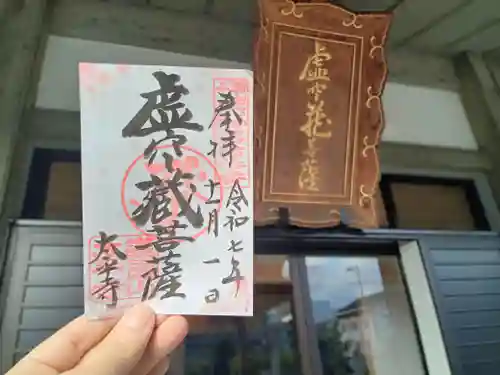 奉拝
令和七年
十一月一日
虚空蔵菩薩
太平寺
虚空蔵菩薩